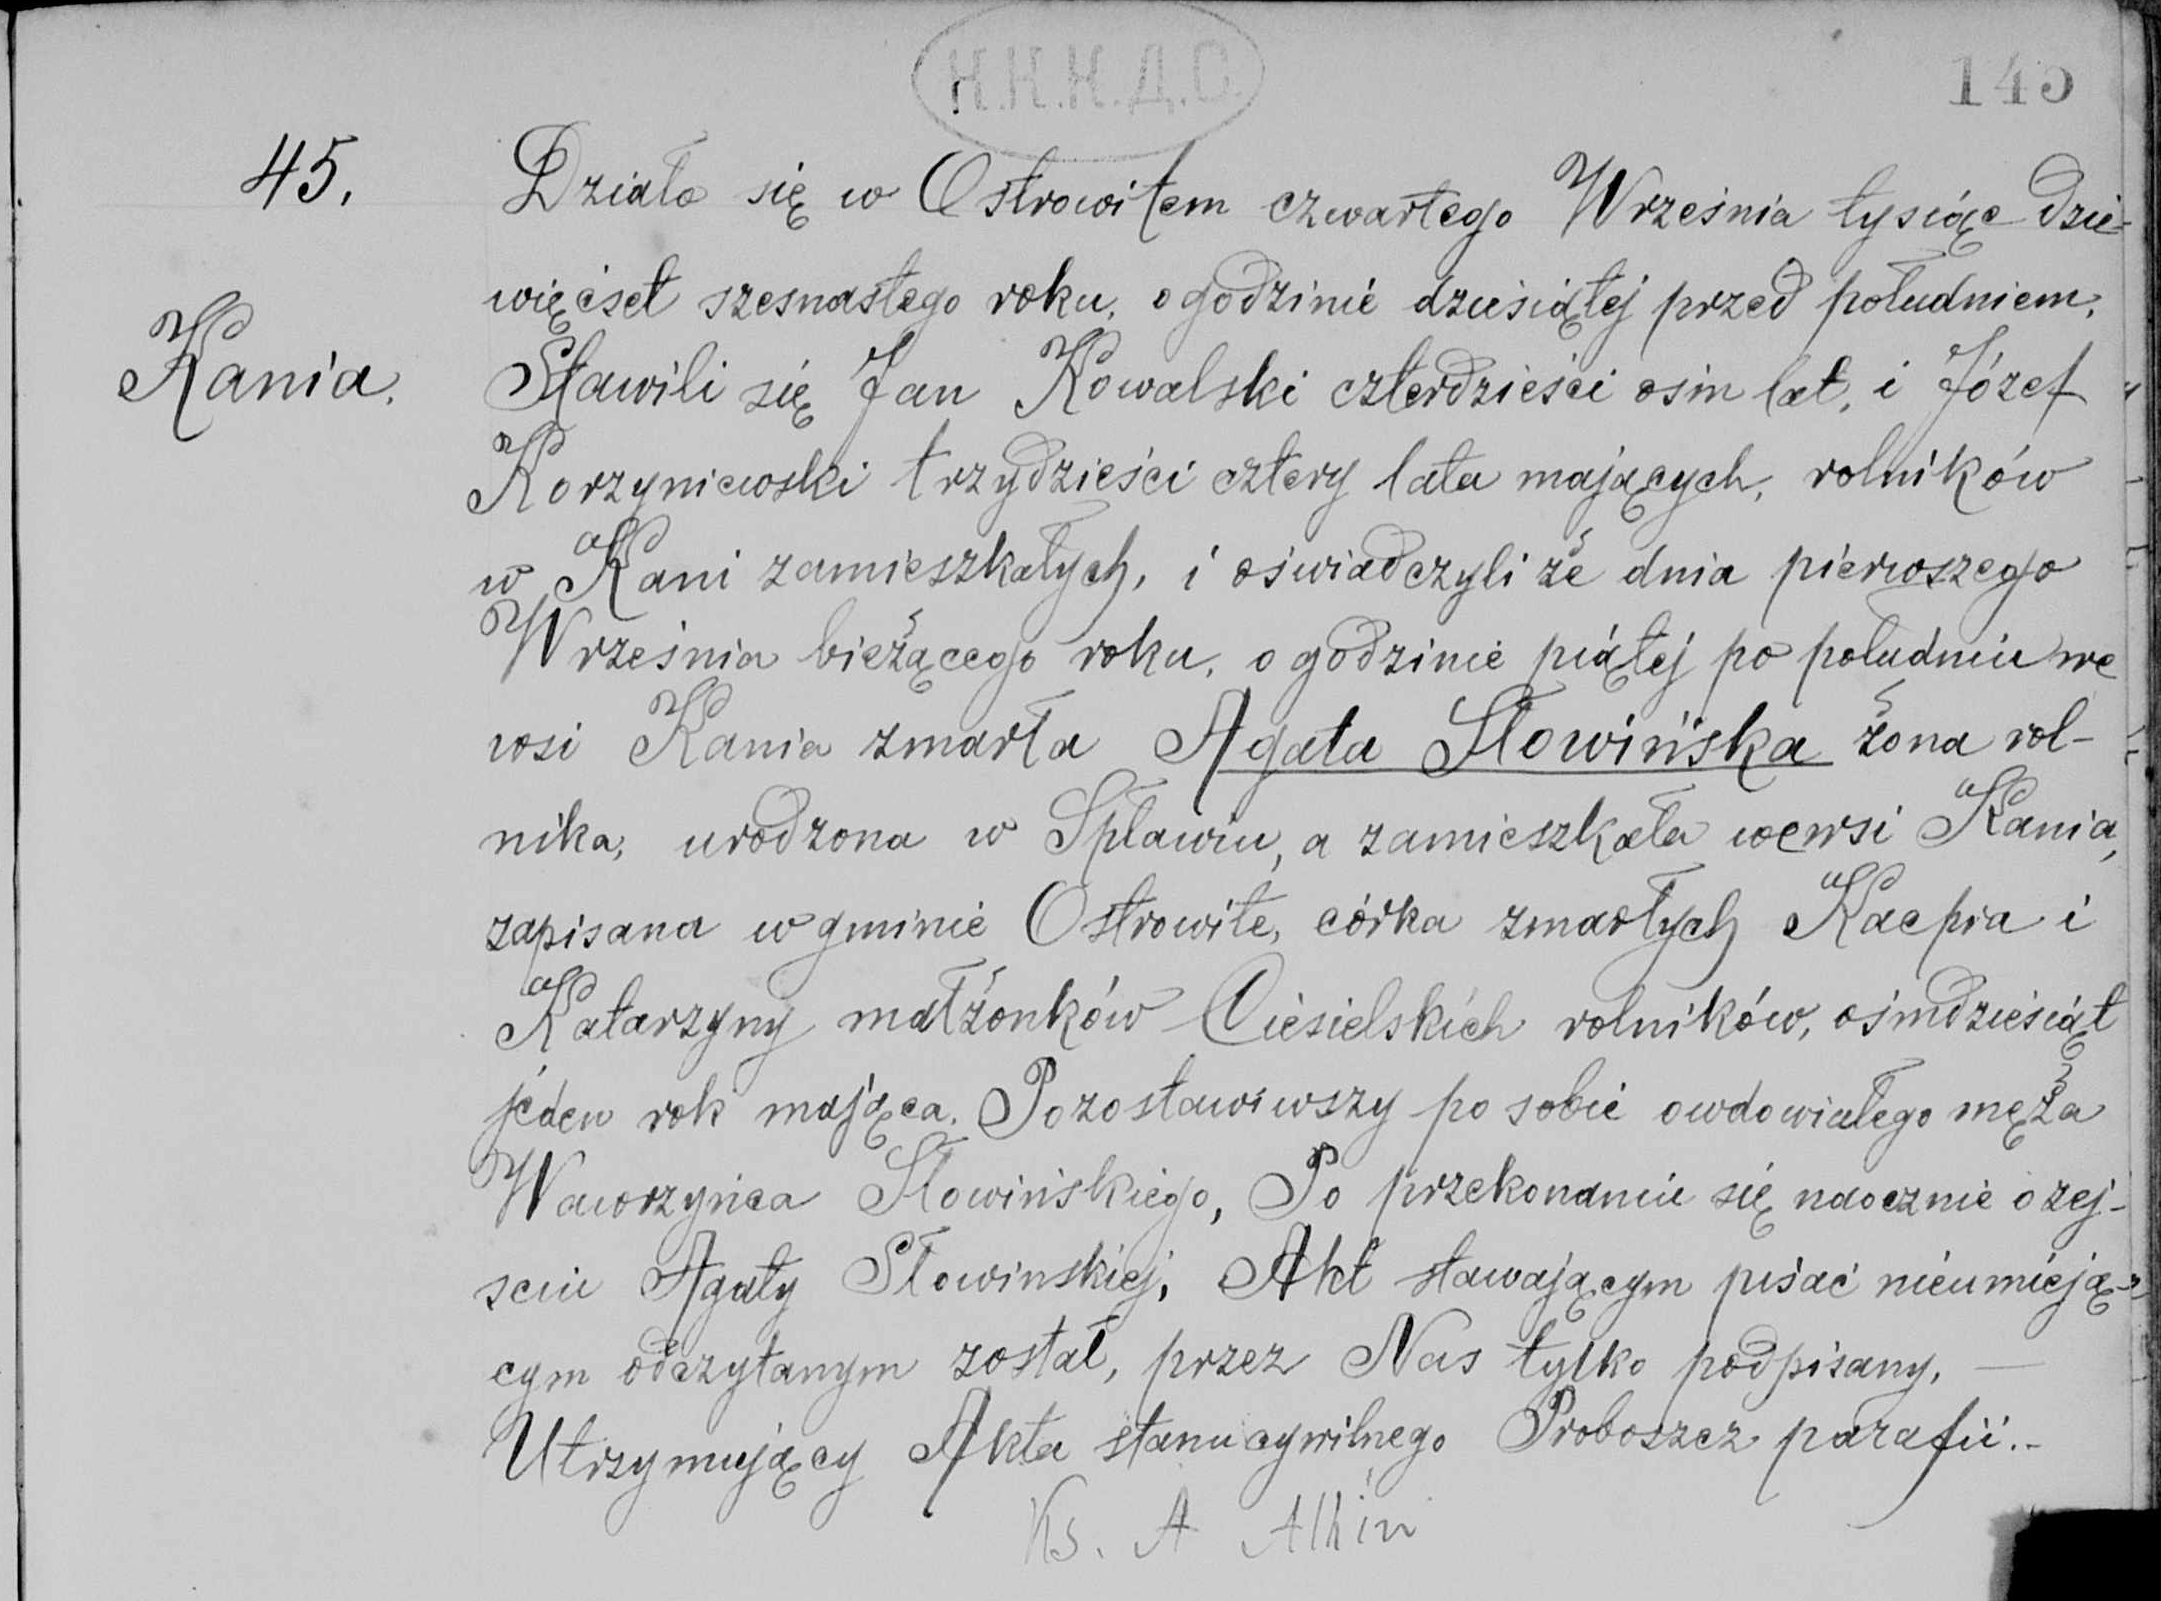 Н.Н.Н.Д.О.
145
45.
Działo się w Ostrowitem czwartego Września tysiąc dzie-
więćset szesnastego roku, o godzinie dziesiątej przed południem.
Kania.
Stawili się Jan Kowalski czterdzieści osim lat, i Józef
Korzyniewski trzydzieści cztery lata mających, rolników
w Kani zamieszkałych, i oświadczyli że dnia pierwszego
Września bieżącego roku, o godzinie piątej po południu we
wsi Kania zmarła Agata Słowińska żona rol-
nika, urodzona w Spławiu, a zamieszkała we wsi Kania,
zapisana w gminie Ostrowite, córka zmarłych Kacpra i
Katarzyny małżonków Ciesielskich rolników, ośmdziesiąt
jeden rok mająca. Pozostawiwszy po sobie owdowiałego męża
Wawrzyńca Słowińskiego, Po przekonaniu się naocznie o zej-
sciu Agaty Słowinskiej, Akt stawającym pisać nieumieją-
cym odczytanym został, przez Nas tylko podpisany. —
Utrzymujący Akta stanu cywilnego Proboszcz parafii.-
Ks. A